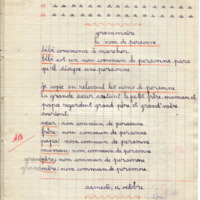 grammaire
le nom de personne
bébé commence à marcher
bébé est un nom commun de personne parce
qu'il désigne une personne
Je copie en relevant les noms de personne
la grande sœur soutient le petit frère maman et
papa regardent grand père et grand'mère
sourient
sœur nom commun de personne
frère nom commun de personne
papa nom commun de personne
maman nom commun de personne
grand père nom commun de personne
grand mère nom commun de personne
samedi octobre